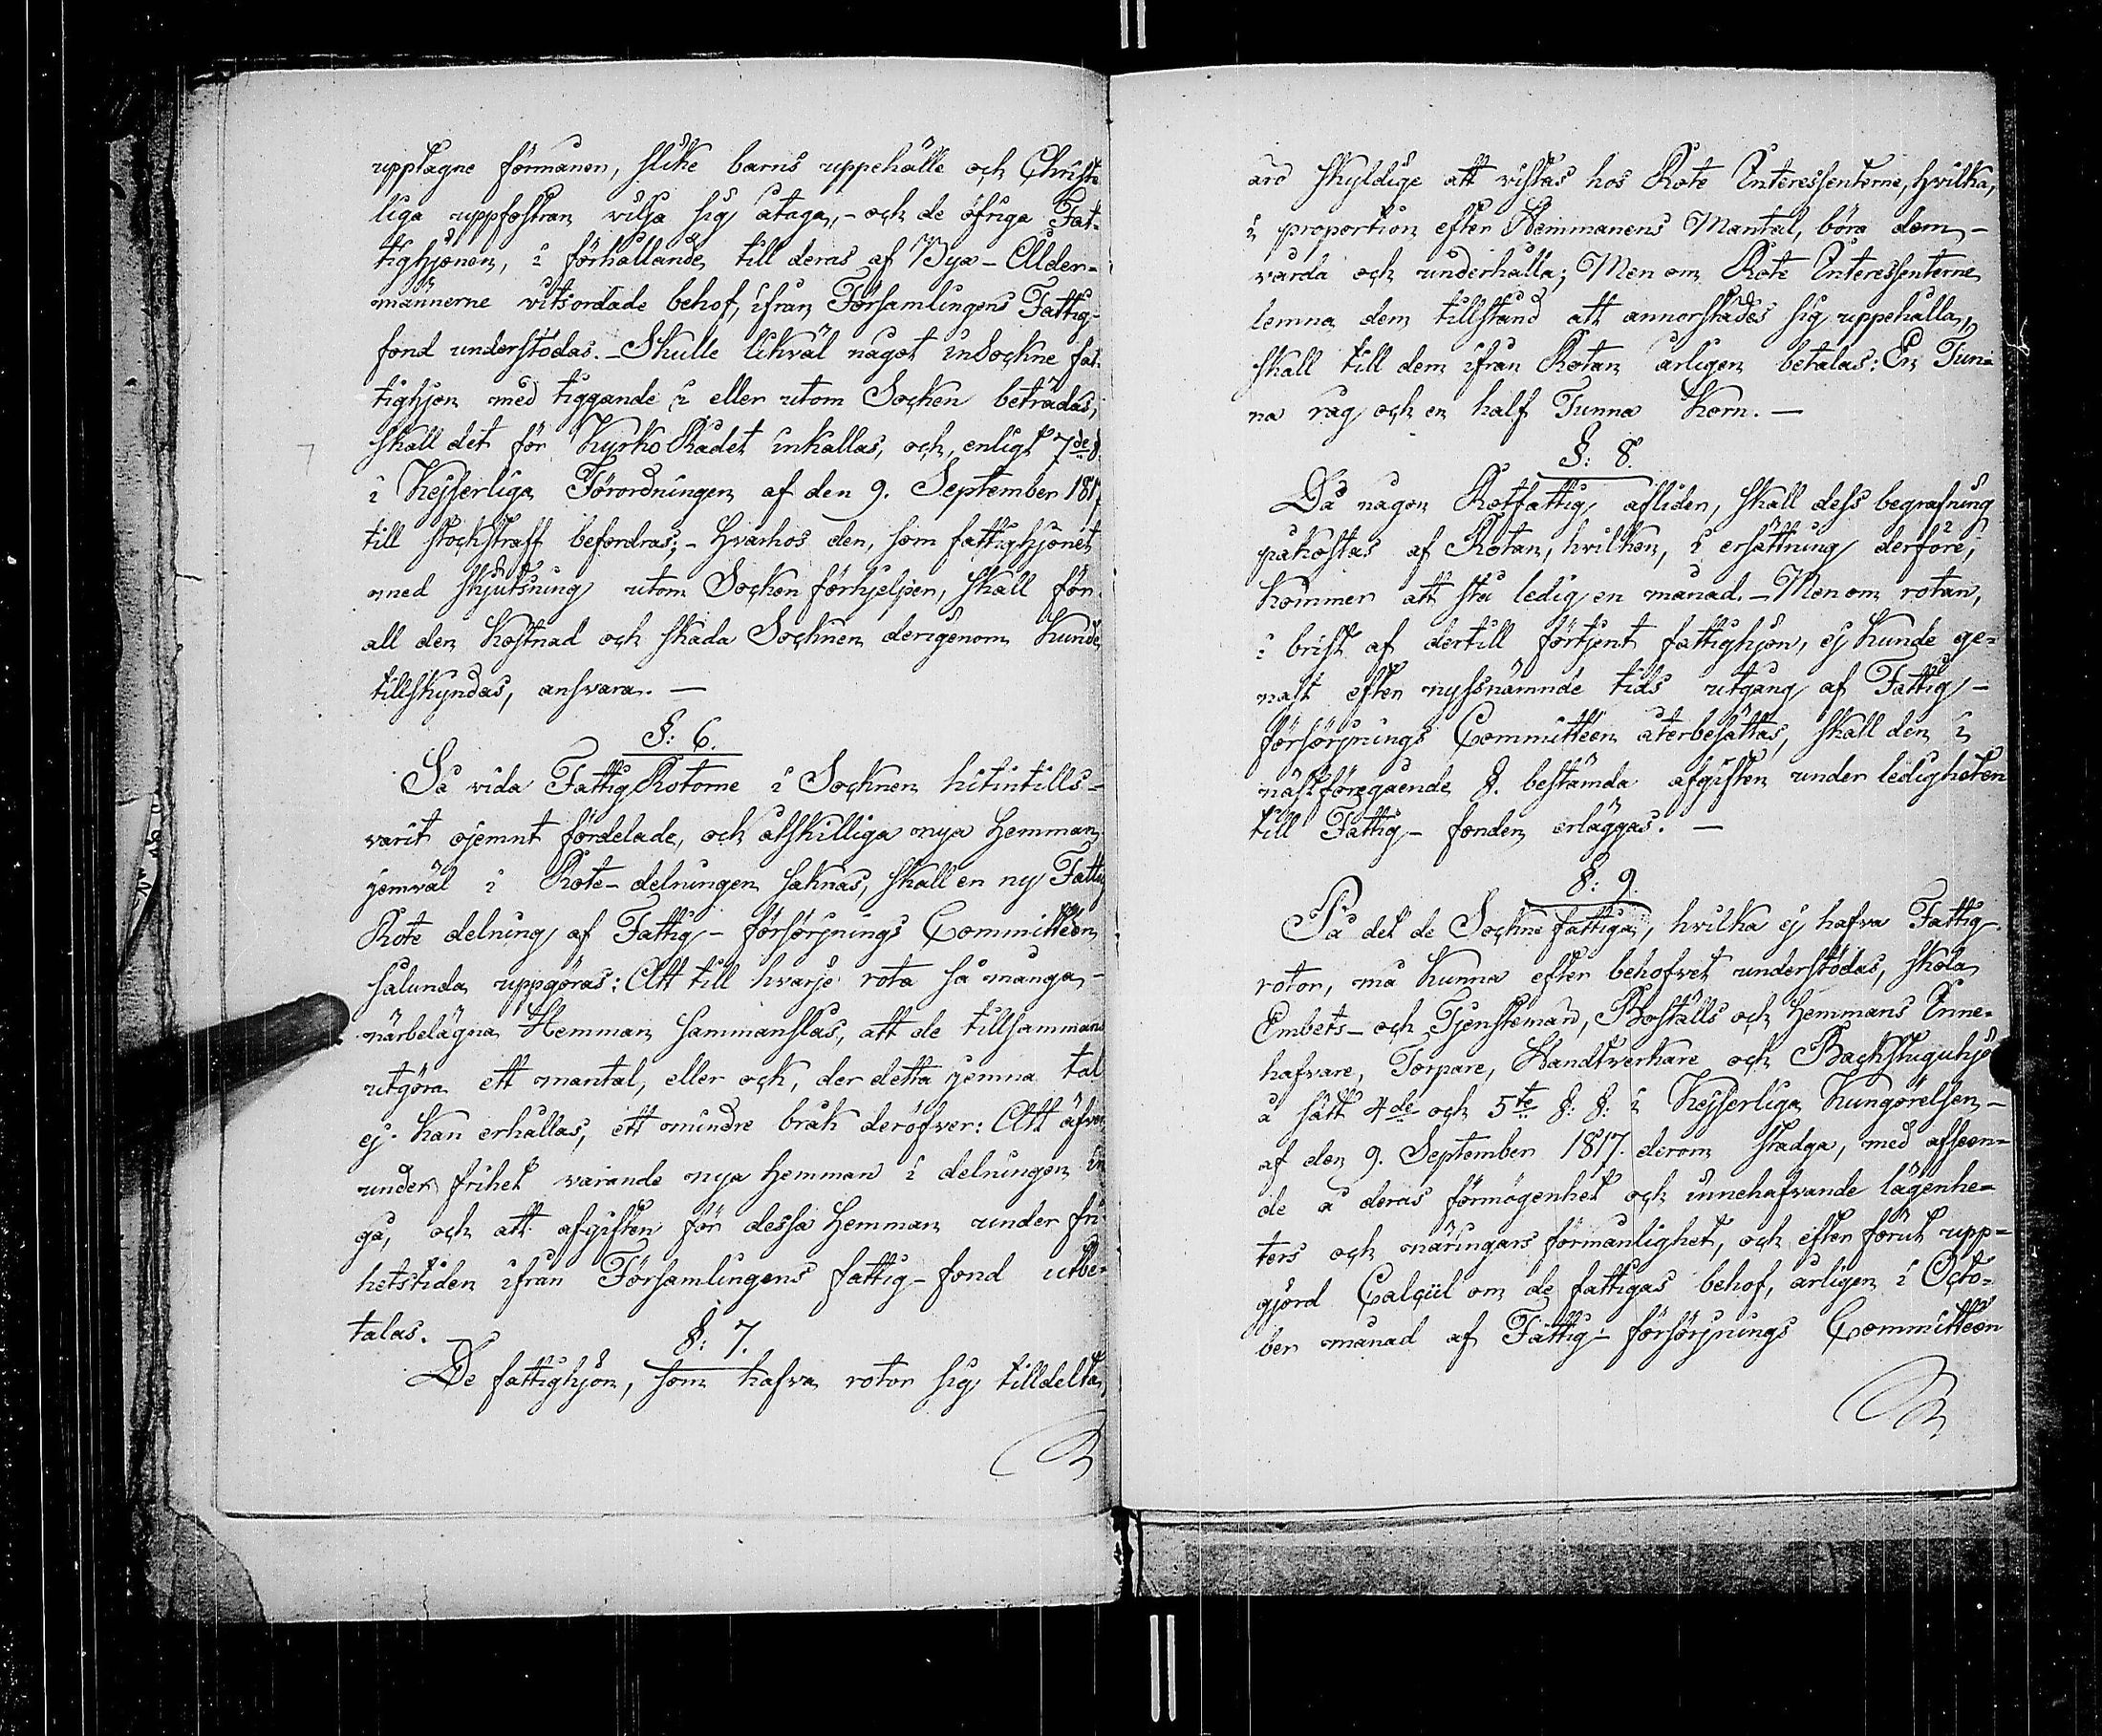 upptagne förmåner, slike barns uppehälle och Christe
liga uppfostran vilja sig åtaga, - och de öfriga Fat-
tighjonen, i förhållande till deras af Bya-Ålder-
männerne vitsordade behof, ifrån Församlingens Fattig-
fond understödas. - Skulle likväl något inSockne fat-
tighjon med tiggande i eller utom Socken beträdas,
skall det för KyrkoRådet inkallas, och, enligt 7de §.
i Kejserliga Förordningen af den 9. September 1817,
till stockstraff befordras; - Hvarhos den, som fattighjonet
med skjutsning utom Socken förhjelper, skall för
all den kostnad och skada Socknen derigenom kunde
tillskyndas, ansvara. -
§: 6.
Så vida FattigRotorne i Socknen hitintills-
varit ojemnt fördelade, och åtskilliga nya Hemman
jemväl i Rote-delningen saknas, skall en ny Fattig
Rote delning af Fattig-försörjnings Committéen
sålunda uppgöras: Att till hvarje rota så många-
närbelägna Hemman sammanslås, att de tillsammans
utgöra ett mantal, eller ock, der detta jemna tal
ej kan erhållas, ett mindre bråk deröfver: Att äfven
under frihet varande nya Hemman i delningen in
gå, och att afgiften för dessa Hemman under fri-
hetstiden ifrån Församlingens fattig-fond utbe-
talas.
§: 7.
De fattighjon, som hafva rotor sig tilldelta,
äro skyldige att vistas hos Rote Interessenterne, hvilka,
i proportion efter Hemmanens Mantal, böra dem -
vårda och underhålla; Men om Rote Interessenterne
lemna dem tillstånd att annorstädes sig uppehålla,
skall till dem ifrån Rotan årligen betalas: En Tun-
na råg och en half Tunna korn. -
§: 8.
Då någon Rotfattig afliden, skall dess begrafning
påkostas af Rotan, hvilken, i ersättning derföre,
kommer att stå ledig en månad. - Men om rotan,
i brist af dertill förtjent fattighjon, ej kunde ge-
nast efter nyssnämnde tids utgång af Fattig-
försörjnings Committéen återbesättas, skall den i
nästföregående §. bestämda afgiften under ledigheten
till Fattig-fonden erläggas. -
§: 9.
På det de Sockne fattiga, hvilka ej hafva Fattig-
rotor, må kunna efter behofvet understödas, skola
Embets- och Tjensteman, Boställs och Hemmans Inne-
hafvare, Torpare, Handtverkare och Backstuguhjo
å sätt 4de och 5te §: §: i Kejserliga Kungörelsen -
af den 9. September 1817. derom stadga, med afseen-
de å deras förmögenhet och innehafvande lägenhe-
ters och näringars förmånlighet, och efter förut upp-
gjord Calcül om de fattigas behof, årligen i Octo-
ber månad af Fattig-försörjnings Committéen